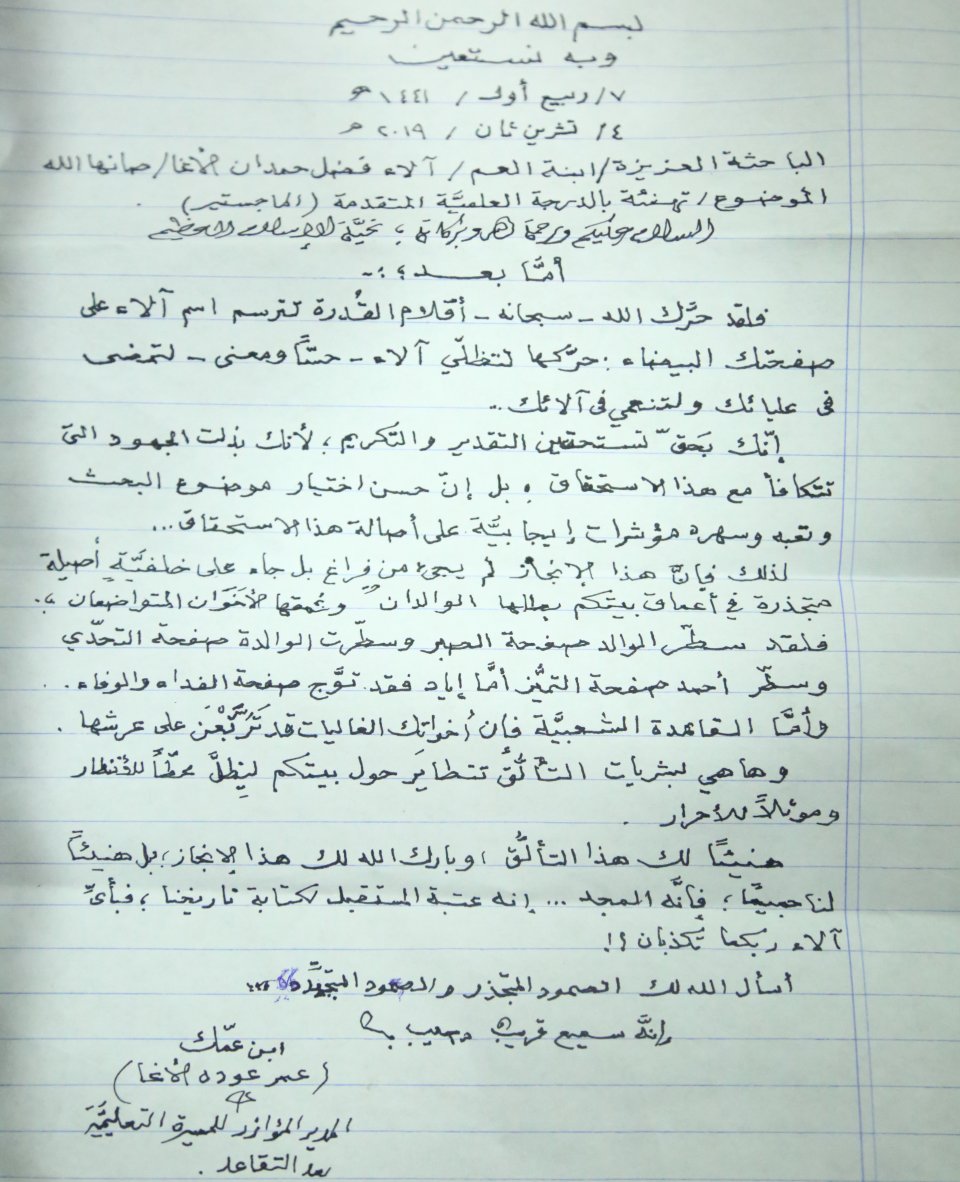 بسم الله الرحمن الرحيم
وبه نستعين
٧/ ربيع أول / ١٤٤١ هـ
٤/ تشرين ثان / ٢٠١٩ م
الباحثة العزيزة/ ابنة العم/ آلاء فضل حمدان الأغا/ صانها الله
الموضوع/ تهنئة بالدرجة العلميَّة المتقدمة (الماجستير) .
السلام عليكم ورحمة الله وبركاته ؛ تحيَّة الإسلام العظيم
أمَّا بعد ؛ :-
فلقد حرَّك الله - سبحانه - أقلام القُدرة لترسم اسم آلاء على
صفحتك البيضاء ؛ حرّكها لتظلّي آلاء - حسَّاً ومعنى - لتمضى
فى عليائك ولتنعمي فى آلائك ..
إنّك بَحقّ تستحقين التقدير والتكريم ؛ لأنك بذلت الجهود التى
تتكافأ مع هذا الاستحقاق ؛ بل إنّ حسن اختيار موضوع البحث
وتعبه وسهره مؤشرات إيجابيَّة على أصالة هذا الاستحقاق ...
لذلك فإنَّ هذا الإنجاز لم يجئ من فراغ بل جاء على خلفيَّةٍ أصيلة
متجذرة في أعماق بيتكم بطلها الوالدان وعُمقها الأخَوَان المتواضعان ؛.
فلقد سطّر الوالد صفحة الصبر وسطّرت الوالدة صفحة التحدّي
وسطّر أحمد صفحة التميُّز أمَّا إياد فقد توَّج صفحة الفداء والوفاء . .
وأمَّا القاعدة الشعبيَّة فإن أخواتك الغاليات قد تَرَبَّعْنَ على عرشها .
وها هي بشريات التألُّق تتطايَر حول بيتكم ليظلَّ محطّاً للأنظار
وموئلاً للأحرار .
هنيئاً لك هذا التألُّق ، وبارك الله لك هذا الإنجاز ؛ بل هنيئاً
لنا جميعًا ؛ فإنَّه المجد ... إنه عتبة المستقبل لكتابة تاريخنا ؛ فبأيِّ
آلاء ربكما تكذبان ؟!
أسأل الله لك الصمود المتجذر والصعود المتجدِّد ...
إنَّه سميع قريب مجيب
ابن عمّك
(عمر عوده الأغا)
المدير المؤازر للمسيرة التعليميَّة
بعد التقاعد .